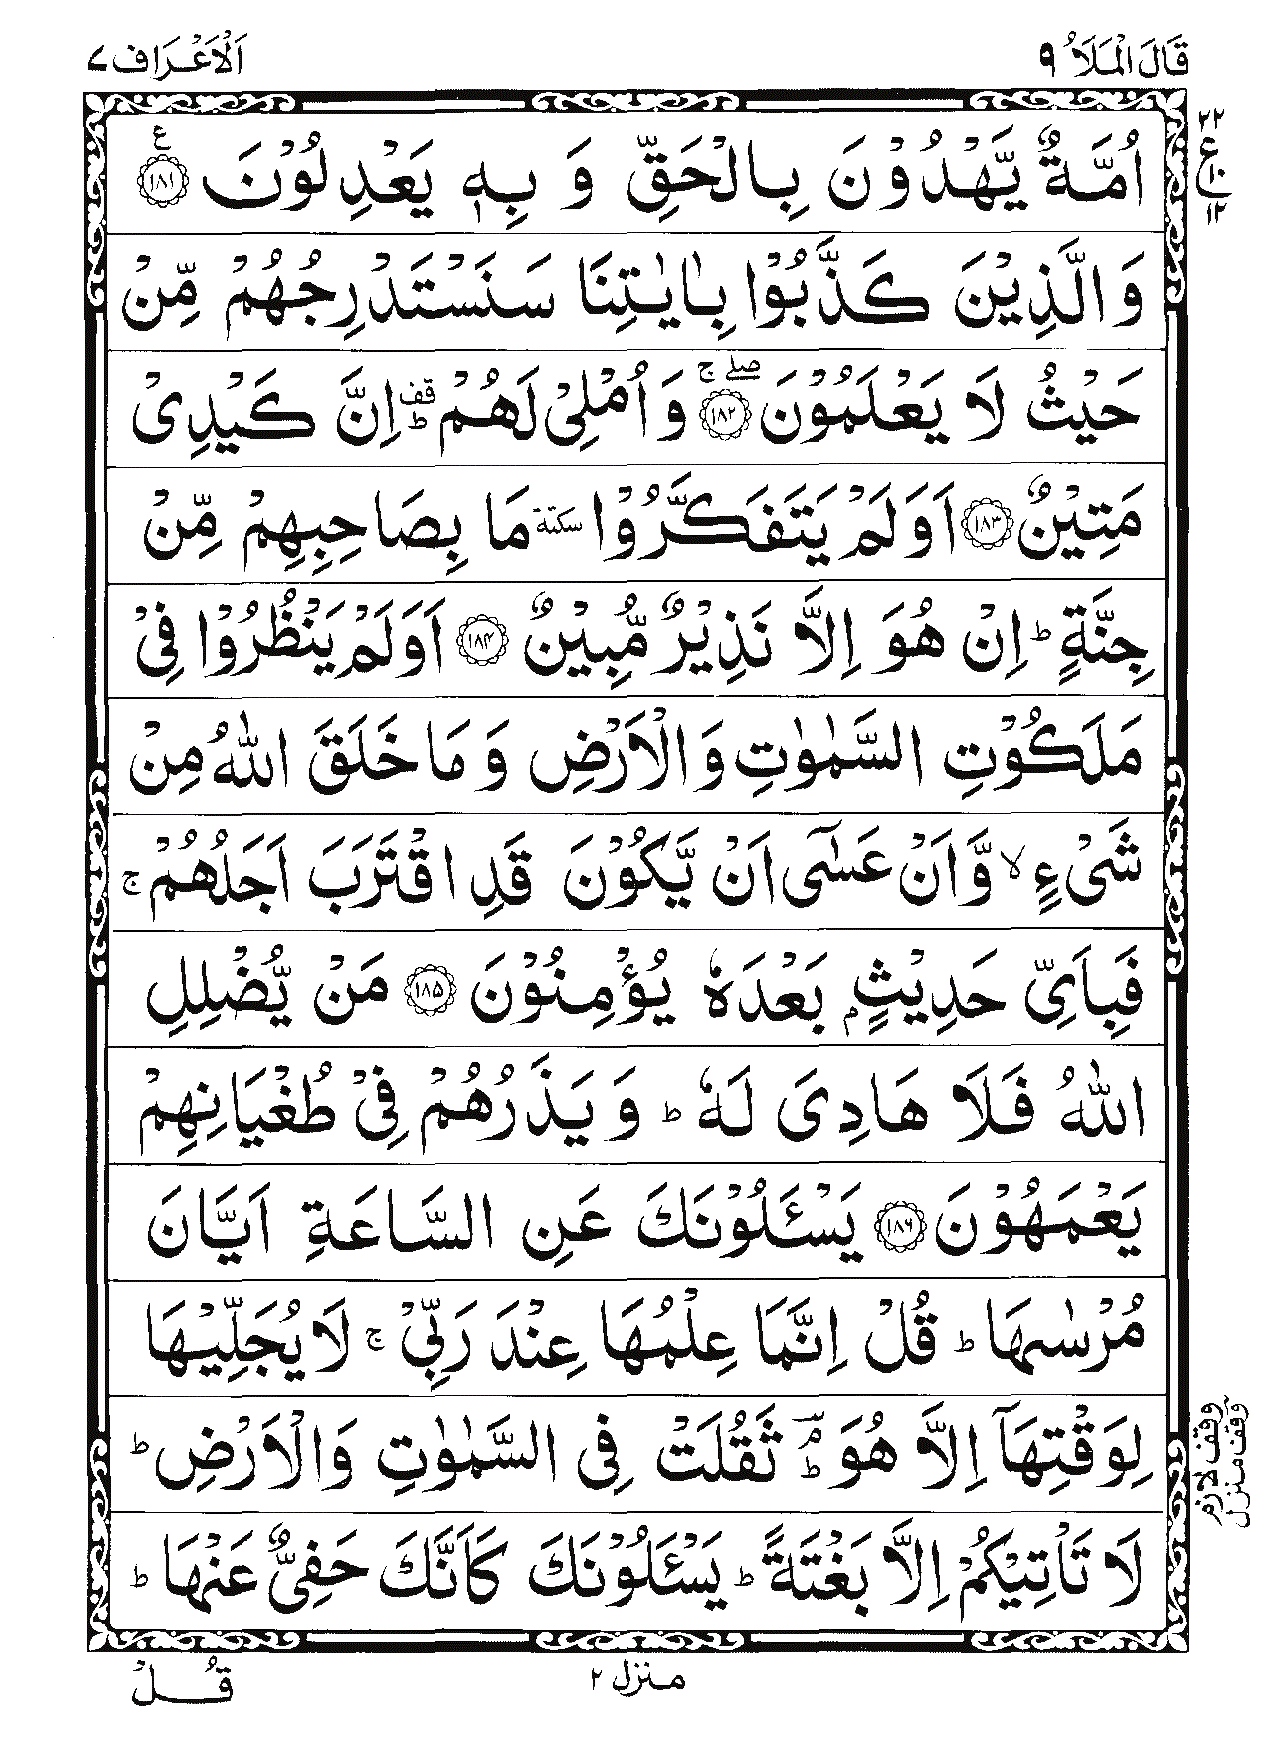 قَالَ الْمَلَاُ ٩
اَلْاَعْرَاف ٧
اُمَّةٌ يَّهْدُوْنَ بِالْحَقِّ وَ بِهٖ يَعْدِلُوْنَ ع ﴿١٨١﴾
٢٢
ع
١٠
١٢
وَالَّذِيْنَ كَذَّبُوْا بِاٰيٰتِنَا سَنَسْتَدْرِجُهُمْ مِّنْ
حَيْثُ لَا يَعْلَمُوْنَ صلے ج ﴿١٨٢﴾ وَاُمْلِىْ لَهُمْ قف ط اِنَّ كَيْدِىْ
مَتِيْنٌ ﴿١٨٣﴾ اَوَلَمْ يَتَفَكَّرُوْا سكتة مَا بِصَاحِبِهِمْ مِّنْ
جِنَّةٍ ط اِنْ هُوَ اِلَّا نَذِيْرٌ مُّبِيْنٌ ﴿١٨٤﴾ اَوَلَمْ يَنْظُرُوْا فِىْ
مَلَكُوْتِ السَّمٰوٰتِ وَالْاَرْضِ وَ مَا خَلَقَ اللّٰهُ مِنْ
شَىْءٍ لا وَّاَنْ عَسٰٓى اَنْ يَّكُوْنَ قَدِ اقْتَرَبَ اَجَلُهُمْ ج
فَبِاَىِّ حَدِيْثٍۭ بَعْدَهٗ يُؤْمِنُوْنَ ﴿١٨٥﴾ مَنْ يُّضْلِلِ
اللّٰهُ فَلَا هَادِىَ لَهٗ ط وَ يَذَرُهُمْ فِىْ طُغْيَانِهِمْ
يَعْمَهُوْنَ ﴿١٨٦﴾ يَسْـَٔلُوْنَكَ عَنِ السَّاعَةِ اَيَّانَ
مُرْسٰىهَا ط قُلْ اِنَّمَا عِلْمُهَا عِنْدَ رَبِّىْ ج لَا يُجَلِّيْهَا
لِوَقْتِهَآ اِلَّا هُوَ م ط ثَقُلَتْ فِى السَّمٰوٰتِ وَالْاَرْضِ ط
وقف لازم
وقف منزل
لَا تَاْتِيْكُمْ اِلَّا بَغْتَةً ط يَسْـَٔلُوْنَكَ كَاَنَّكَ حَفِىٌّ عَنْهَا ط
منزل ٢
قُلْ